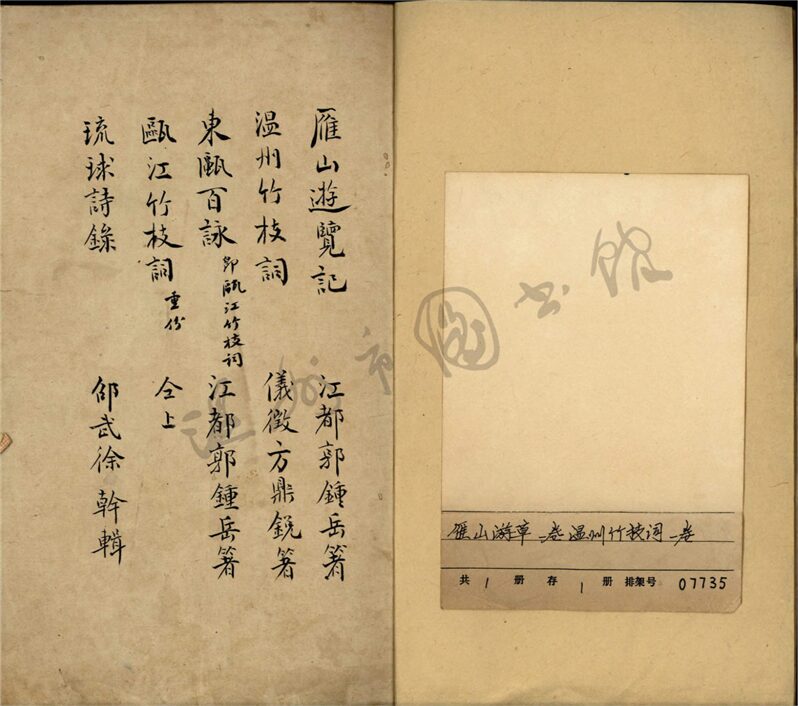 雁山遊覽記 江都郭鍾岳箸
温州竹枝詞 儀徵方鼎鋭箸
東甌百詠 即甌江竹枝词 江都郭鍾岳箸
甌江竹枝詞 重份 仝上
琉球詩錄 邵武徐榦輯
温州市图书馆
雁山游草一卷温州竹枝词一卷
共 1 册 存 1 册 排架号 07735